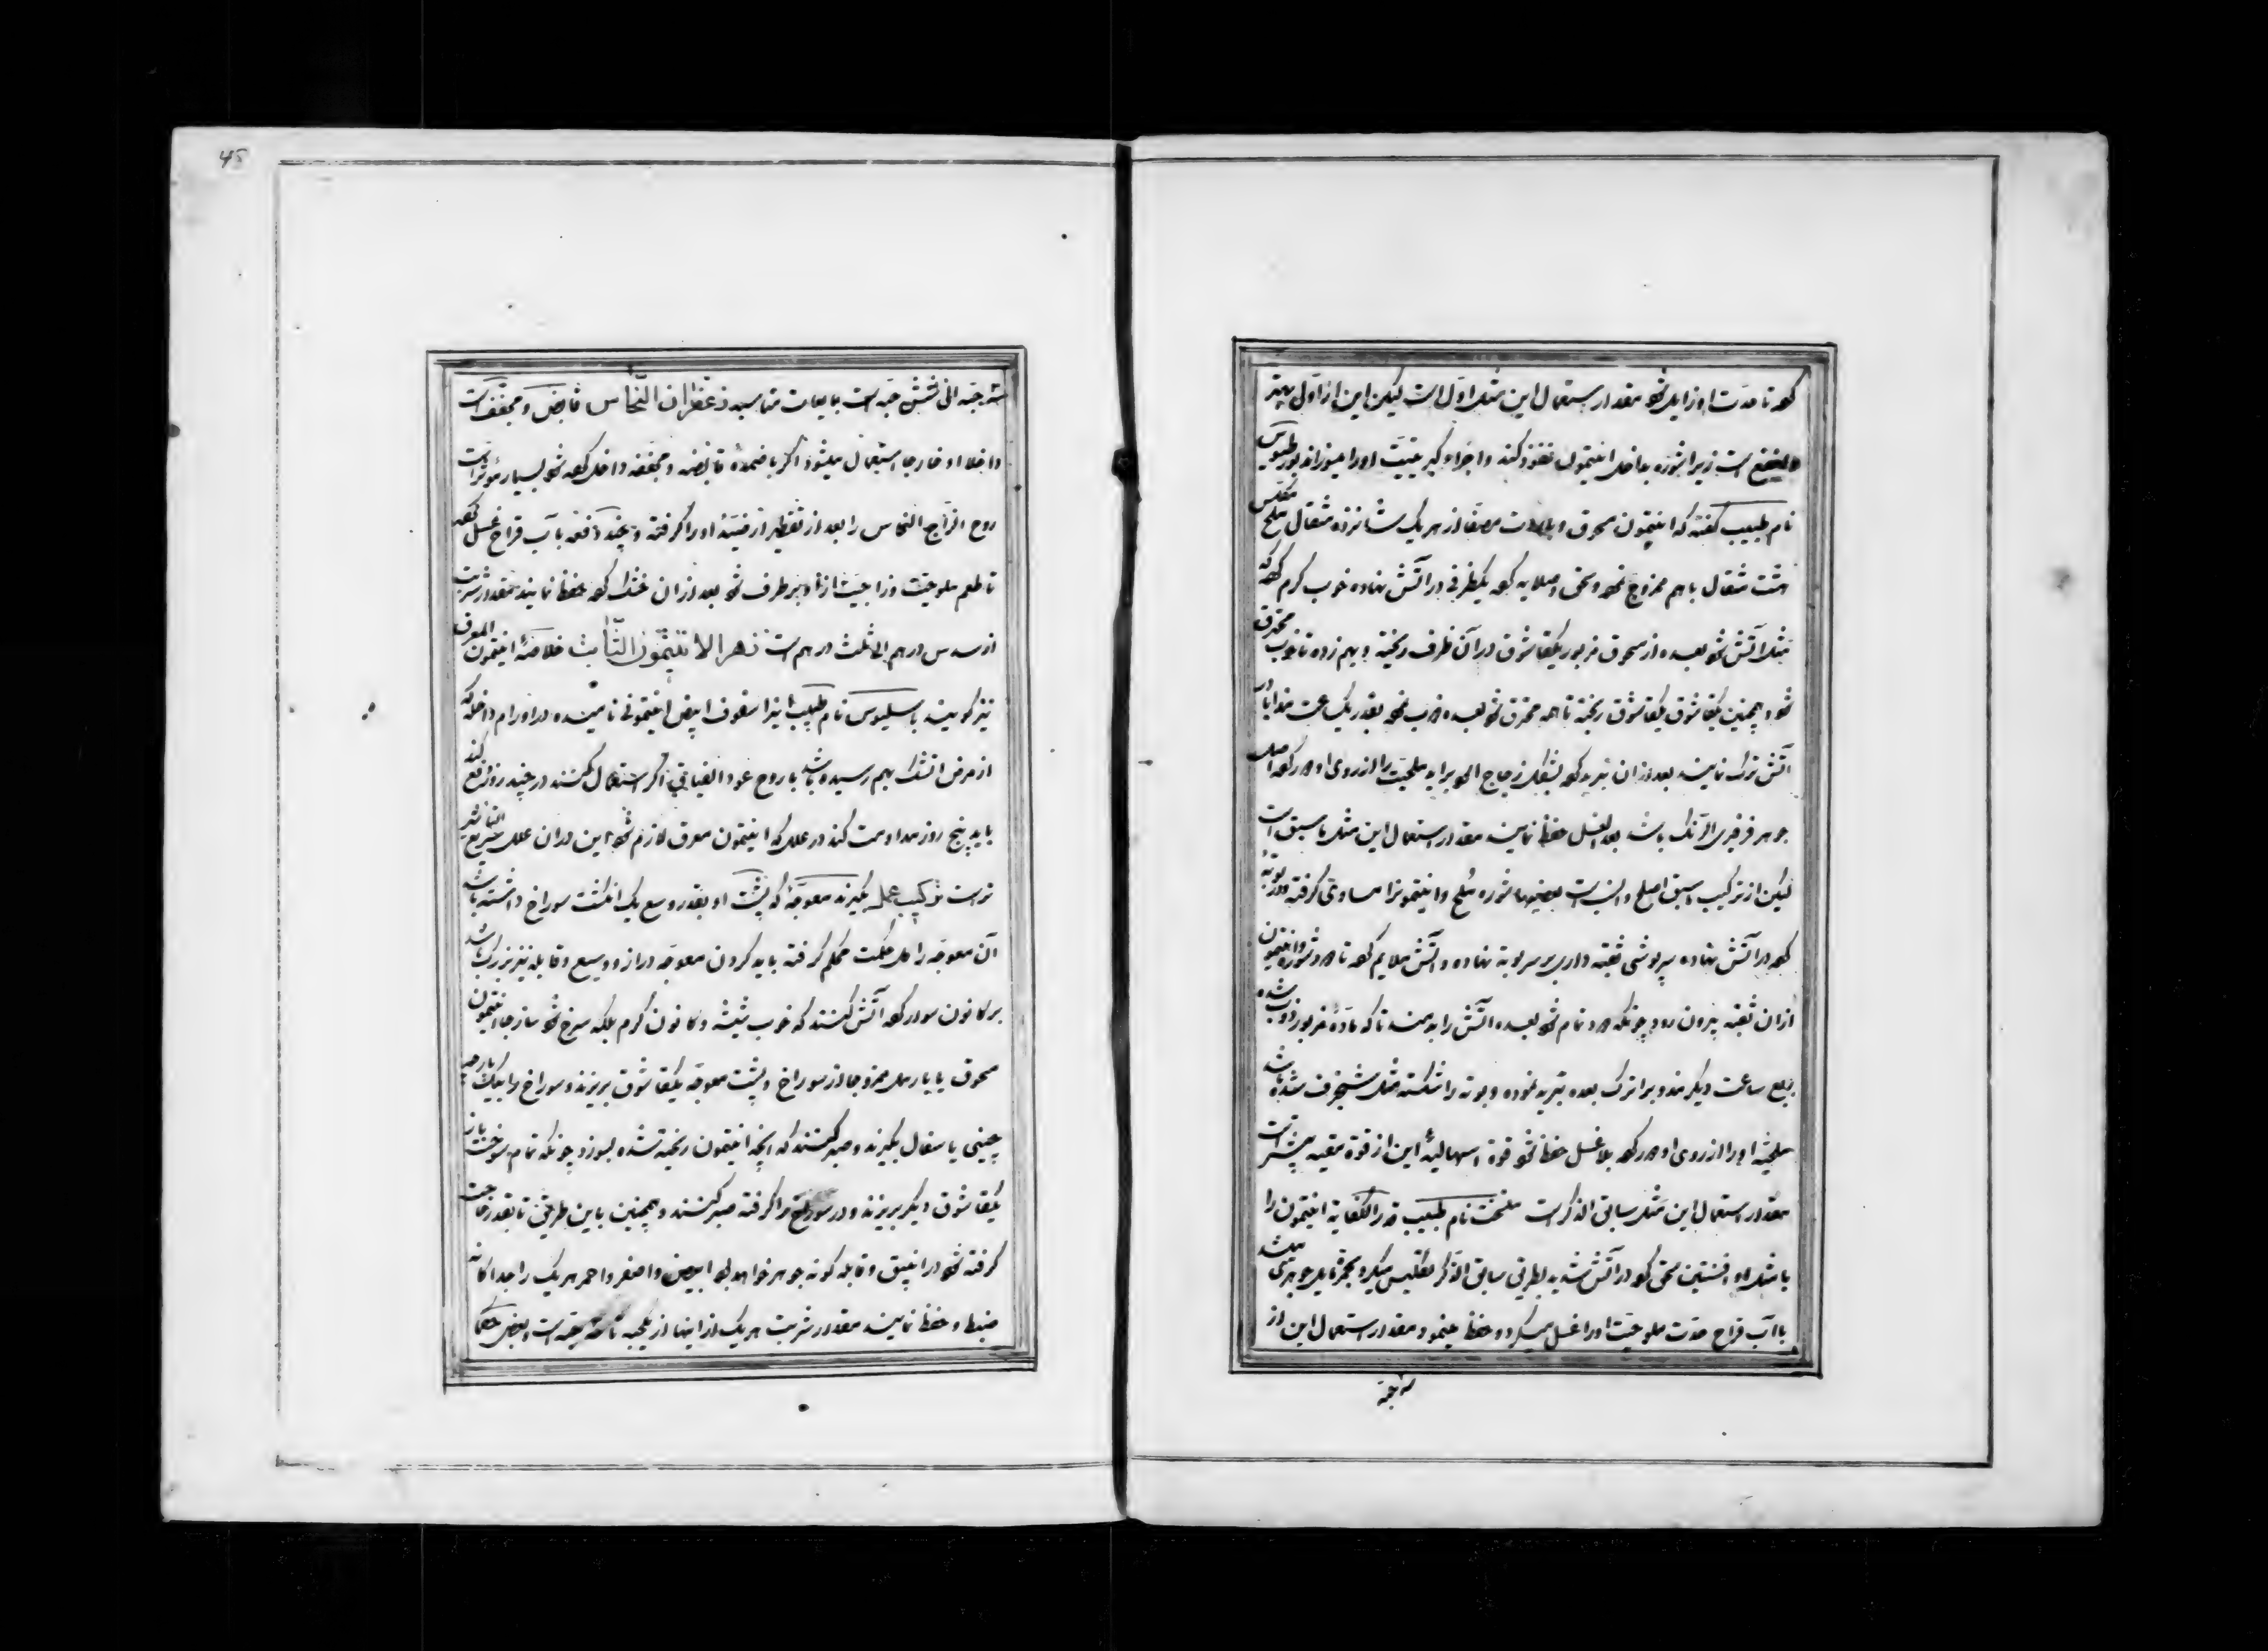 کرده تا حدت او زایل شود مقدار استعمال این مثل اول است لیکن این از اول بهتر
و انفع است زیرا شوره بداخل انتیمون نفوذ کند و اجزاء کبریتیت او را میسوزاند
نام طبیب گفته که انتیمون مسحوق و از هر یک شانزده مثقال ملح
هشت مثقال با هم ممزوج نموده و سحق و صلایه کرده یکظرفی در آتش نهاده خوب گرم کرده که
مثل آتش شود بعده از مسحوق مزبور یکقاشوق در آن ظرف ریخته و بهم زده تا خوب محترق
شود و همچنین یکقاشوق یکقاشوق ریخته تا همه محترق شود بعده بقدر یک ساعت
آتش ترک نمایند بعد از آن تبرید کرده بشکل زجاج ملحیت را از روی او دور کرده اصل
جوهر فرفیری الرنک باشد بعد الغسل حفظ نمایند مقدار استعمال این مثل ما سبق است
لیکن از ترکیب اسبق اصلح و انسب است بعضیها شوره و ملح و انتیمونرا مساوی گرفته در بوته
کرده در آتش نهاده سرپوشی ثقبه داری بر سر بوته نهاده و آتش ملایم کرده تا دود شوره و انتیمون
از آن ثقبه بیرون رود چونکه دود تمام شود بعده آتش را بدمند تا که مادهٔ مزبور ذوب شده
ربع ساعت دیگر بعده تبرید نموده و بوته را شکسته مثل شنجرف شده باشد
ملحیهٔ او را از روی او دور کرده بلا غسل حفظ شود قوة اسهالیهٔ این از قوة مقیه بیشتر است
مقدار استعمال این مثل سابق الذکر است نام طبیب قدر الکفایه انتیمون را
با مثل او افسنتین سحق کرده در آتش شدید بطریق سابق الذکر تکلیس میکرد
با آب قراح حدت ملوحیت او را غسل میکرد و حفظ مینمود مقدار استعمال این از
45
سه حبه الی شش حبه است با مایعات مناسبه زعفران النحاس قابض و مجفف است
داخلا و خارجا استعمال میشود اگر با ضمده قابضه و مجففه داخل کرده شود بسیار مؤثر است
روح الزاج النحاس را بعد از تقطیر او را گرفته و چند دفعه با آب قراح غسل کرده
تا طعم ملوحیت و زاجیت از او برطرف شود بعد از آن خشک کرده حفظ نمایند مقدار شربت
از سدس درهم الی ثلث درهم است زهر الانتیمون الثابت خلاصهٔ انتیمون المعرق
نیز گویند باسلیوس نام طبیب اینرا سفوف ابیض انتیمونی نامیده در اورام داخله که
از مرض آتشک بهم رسیده باشد با روح عود الغیاقی اگر استعمال کنند در چند روز رفع کند
باید پنج روز مداومت کند در علل که انتیمون معرق لازم شود این در آن علل سریع التاثیر
تر است ترکیب عمل بگیرند معوجهٔ که پشت او بقدر وسع یک انگشت سوراخ داشته باشد
آن معوجه را گل حکمت محکم گرفته باید گردن معوجه دراز و وسیع و قابله نیز بزرگ باشد
بر کانون سوار کرده آتش کنند که خوب شیشه و کانون گرم بلکه سرخ شود انتیمون
مسحوق یا با رمل ممزوجا از سوراخ پشت معوجه یکقاشوق بریزند و سوراخ را بیک پارچه
چینی یا سفال بگیرند و صبر کنند که آنچه انتیمون ریخته شده بسوزد چونکه تمام سوخت باز
یکقاشوق دیگر بریزند و در سوراخ را گرفته صبر کنند و همچنین باین طریق تا بقدر حاجت
گرفته شود در انبیق و قابله گونه جوهر خواهد بود ابیض و اصفر و احمر هر یک را جداگانه
ضبط و حفظ نمایند مقدار شربت هر یک از اینها از یکحبه تا است بعض حکما